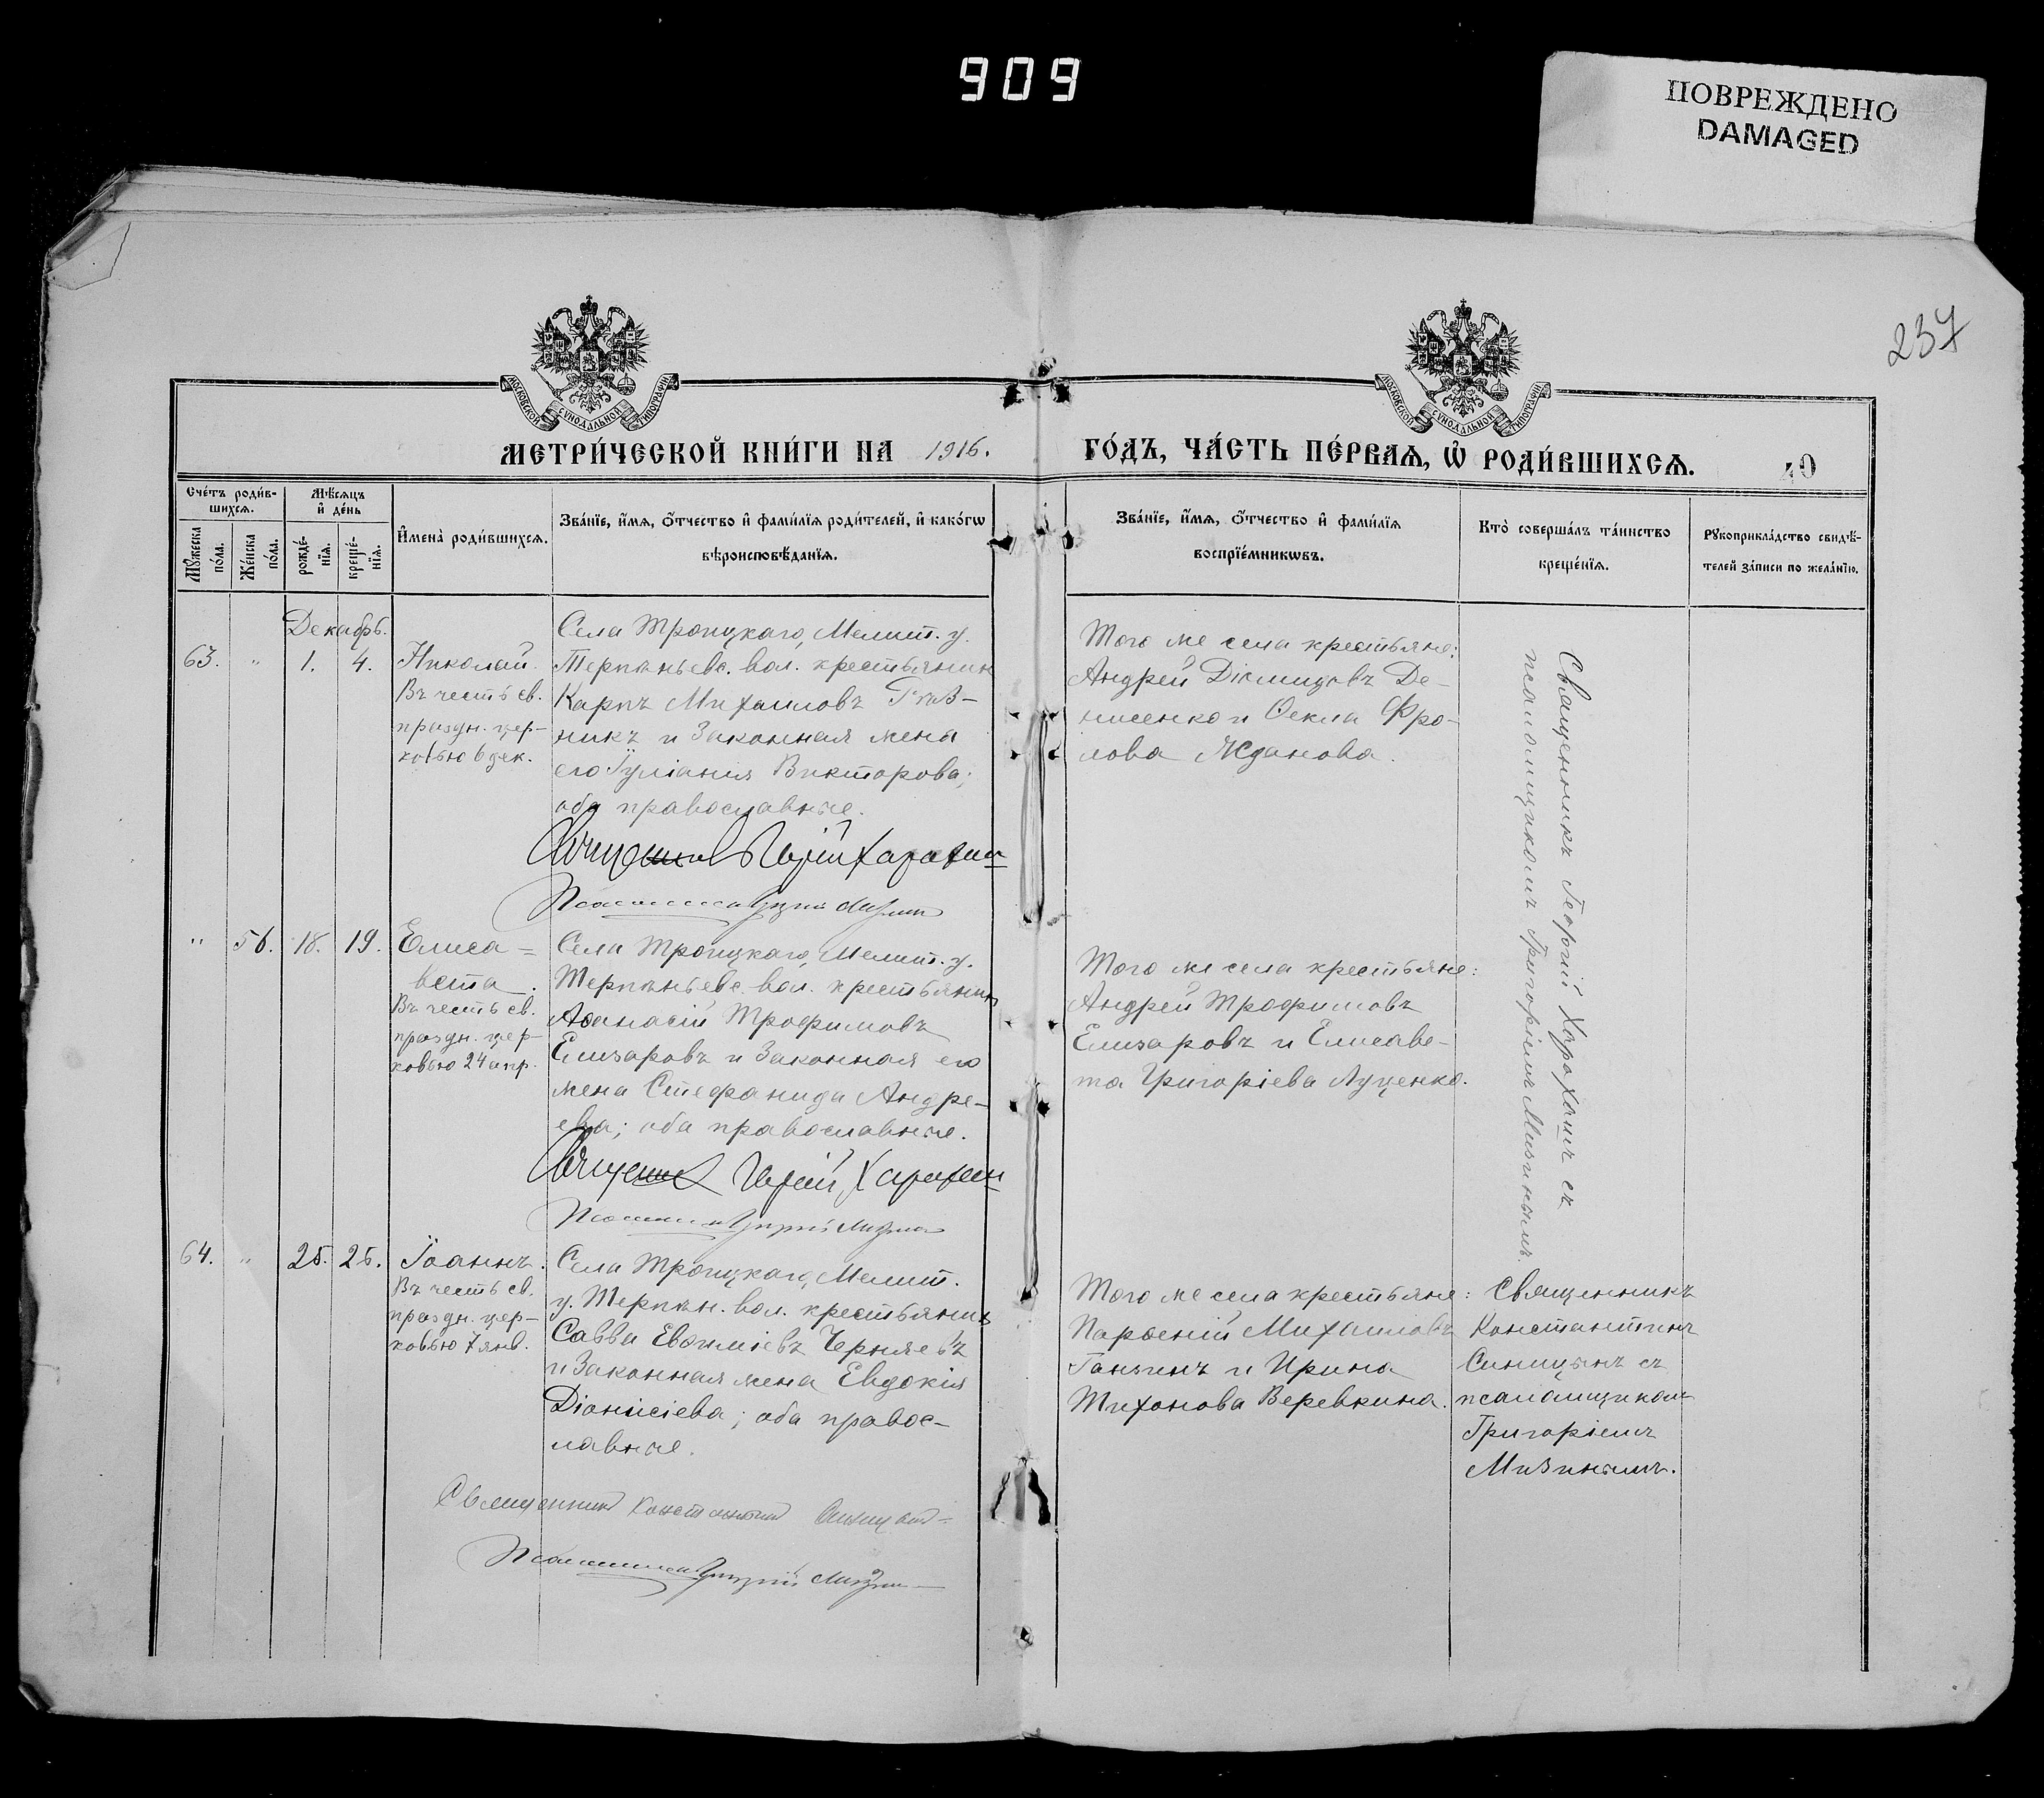 909
ПОВРЕЖДЕНО
DAMAGED
237
МОСКОВСКОЙ СѴНОДАЛЬНОЙ ТИПОГРАФІИ
МОСКОВСКОЙ СѴНОДАЛЬНОЙ ТИПОГРАФІИ
МЕТРИ́ЧЕСКОЙ КНИ́ГИ НА 1916.
ГО́ДЪ, ЧА́СТЬ ПЕ́РВАѦ, Ѽ РОДИ́ВШИХСѦ.
40
Сче́тъ роди́в-
шихсѧ.
Мꙋ́жеска по́ла.
Же́нска по́ла.
Мѣ́сѧцъ
и҆ де́нь
рожде́-
нїѧ.
креще́-
нїѧ.
И҆мена̀ роди́вшихсѧ.
Зва́нїе, и҆́мѧ, ѻ҆́тчество и҆ фами́лїѧ роди́телей, и҆ како́гѡ
вѣроисповѣ́данїѧ.
Зва́нїе, и҆́мѧ, ѻ҆́тчество и҆ фами́лїѧ
воспрїе́мникѡвъ.
Кто̀ соверша́лъ та́инство
креще́нїѧ.
Рꙋкоприкла́дство свидѣ́-
телей за́писи по жела́нїю.
Декабрь.
63. " 1. 4.
Николай
Въ честь св.
праздн. цер-
ковью 6 дек.
Села Троицкаго, Мелит. у.
Терпѣньевс. вол. крестьянинъ
Карпъ Михаиловъ
никъ и Законная жена
его Іуліанія Викторова;
оба православные.
Священник Георгій Харахаш
Псаломщик Григорій Мизин
Того же села крестьяне:
Андрей Діомидовъ Де-
нисенко и Ѳекла Фро-
лова Жданова.
Священникъ Георгій Харахашъ съ
псаломщикомъ Григоріемъ Мизинымъ.
" 56. 18. 19.
Елиса-
вета.
Въ честь св.
праздн. цер-
ковью 24 апр.
Села Троицкаго, Мелит. у.
Терпѣньевс. вол. крестьянинъ
Аѳанасій Трофимовъ
Елизаровъ и Законная его
жена Стефанида Андре-
ева; оба православные.
Священник Георгій Харахаш
Псаломщик Григорій Мизин
Того же села крестьяне:
Андрей Трофимовъ
Елизаровъ и Елисаве-
та Григоріева Луценко.
64. " 25. 25.
Іоаннъ.
Въ честь св.
праздн. цер-
ковью 7 янв.
Села Троицкаго, Мелит.
у. Терпѣн. вол. крестьянинъ
Савва Евѳиміевъ Черняевъ
и Законная жена Евдокія
Діонисіева; оба правос-
лавные.
Священник Константин Синицын
Псаломщик Григорій Мизин
Того же села крестьяне:
Парѳеній Михаиловъ
Ганзинъ и Ирина
Тихонова Веревкина.
Священникъ
Константинъ
Синицынъ съ
псаломщиком
Григоріемъ
Мизинымъ.